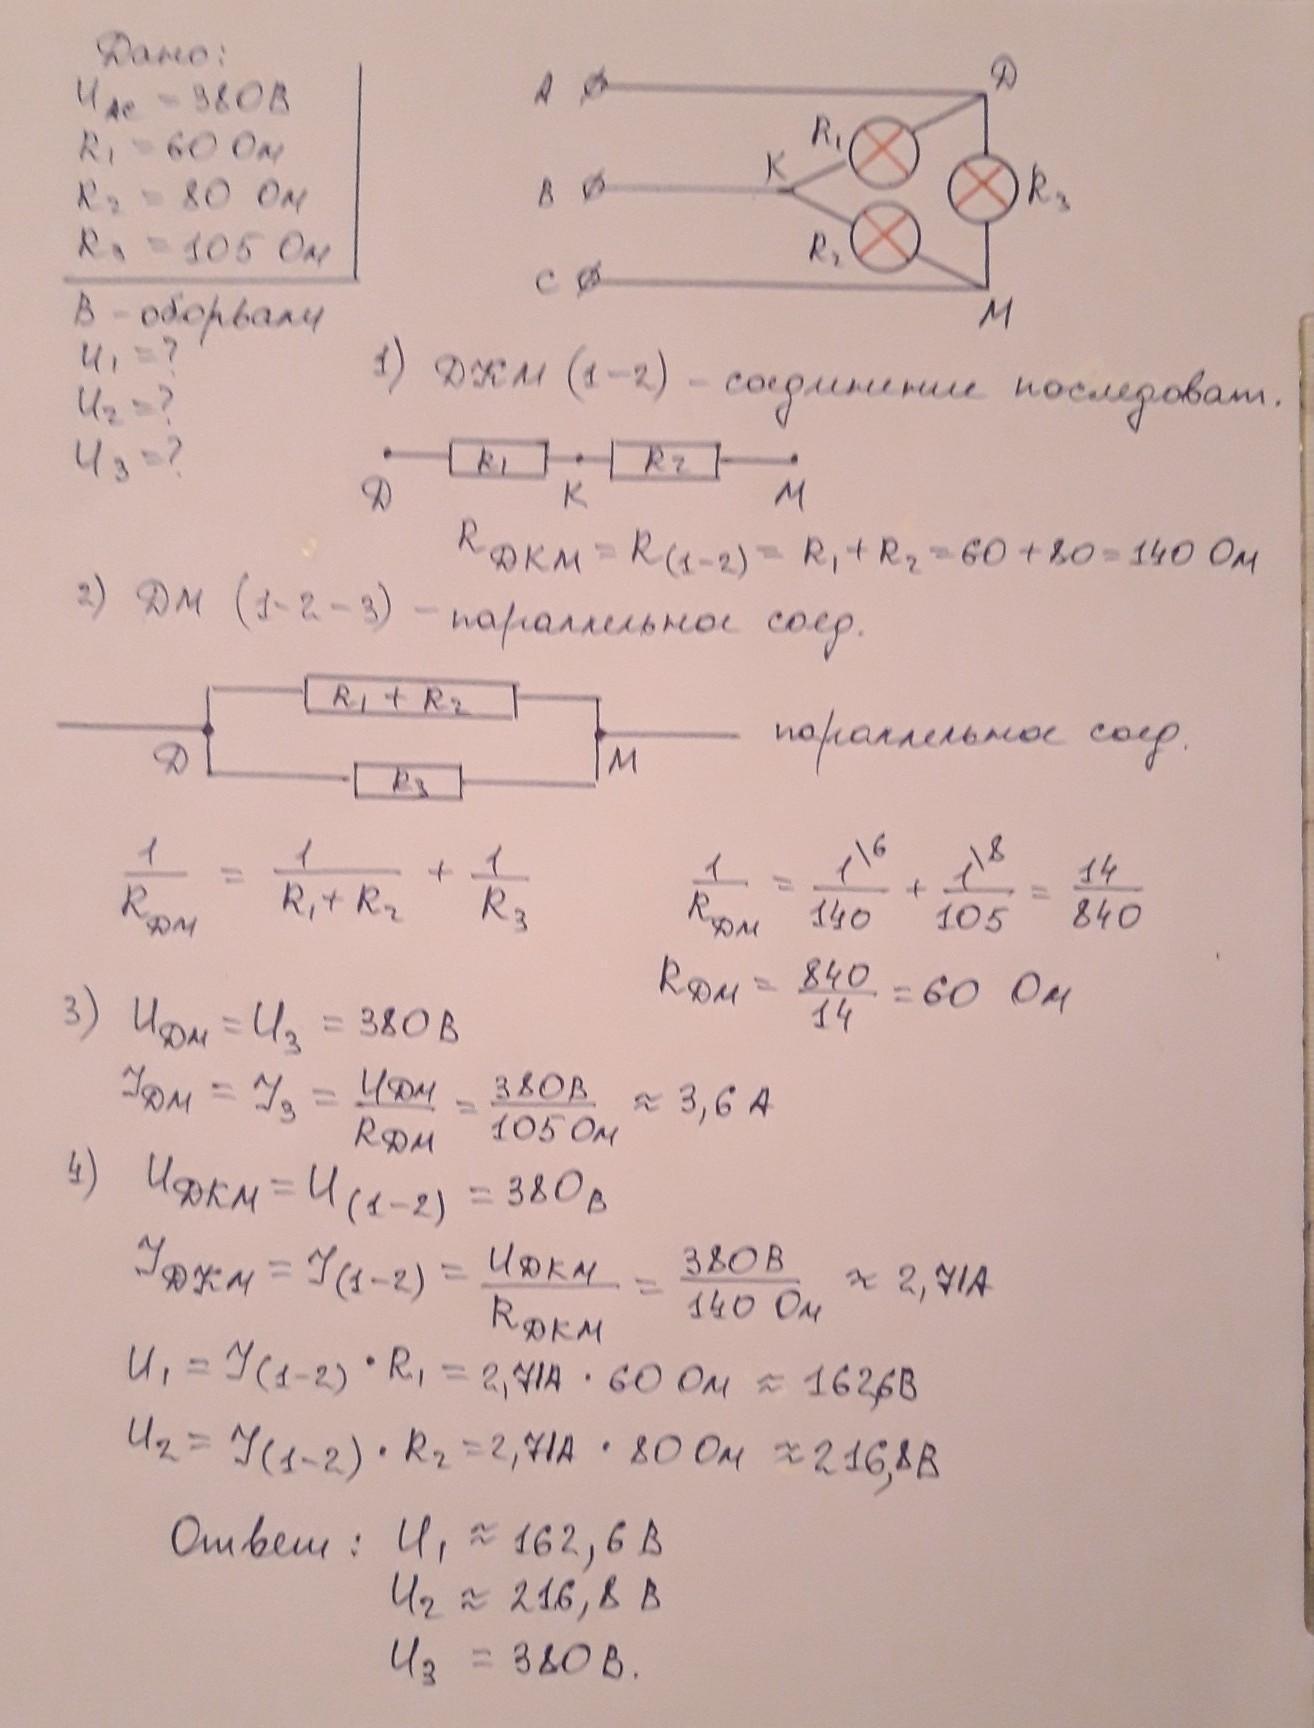 Дано:
U_AC = 380В
R₁ = 60 Ом
R₂ = 80 Ом
R₃ = 105 Ом
В - оборвали
U₁ = ?
U₂ = ?
U₃ = ?
A
B
C
K
Д
М
R₁
R₂
R₃
1) ДКМ (1-2) - соединение последоват.
R₁ R₂
Д К М
R_ДКМ = R_(1-2) = R₁ + R₂ = 60 + 80 = 140 Ом
2) ДМ (1-2-3) - параллельное соед.
R₁ + R₂
Д М параллельное соед.
R₃
1/R_ДМ = 1/(R₁ + R₂) + 1/R₃
1/R_ДМ = 1\6/140 + 1\8/105 = 14/840
R_ДМ = 840/14 = 60 Ом
3) U_ДМ = U₃ = 380В
I_ДМ = I₃ = U_ДМ/R_ДМ = 380В/105 Ом ≈ 3,6 А
4) U_ДКМ = U_(1-2) = 380В
I_ДКМ = I_(1-2) = U_ДКМ/R_ДКМ = 380В/140 Ом ≈ 2,71А
U₁ = I_(1-2) · R₁ = 2,71А · 60 Ом ≈ 162,6В
U₂ = I_(1-2) · R₂ = 2,71А · 80 Ом ≈ 216,8В
Ответ: U₁ ≈ 162,6 В
U₂ ≈ 216,8 В
U₃ = 380 В.